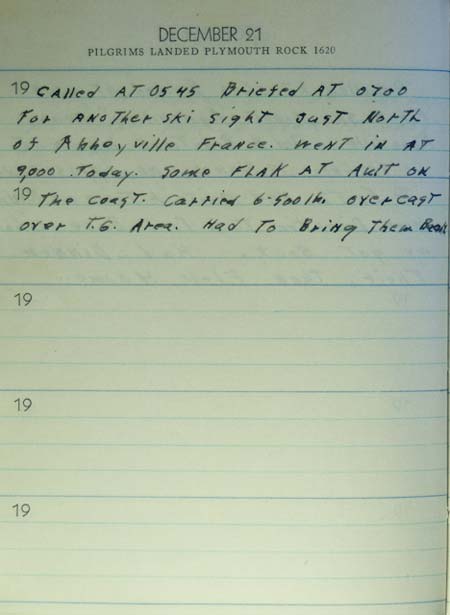 DECEMBER 21
PILGRIMS LANDED PLYMOUTH ROCK 1620
19 Called AT 0545 Briefed AT 0700
For ANOTher ski sight Just North
of Abbeyville France. Went in AT
9,000 Today. Some FLAK AT Ault on
19 The coast. Carried 6-500lb. overcast
over T.G. Area. Had To Bring Them Back
19
19
19